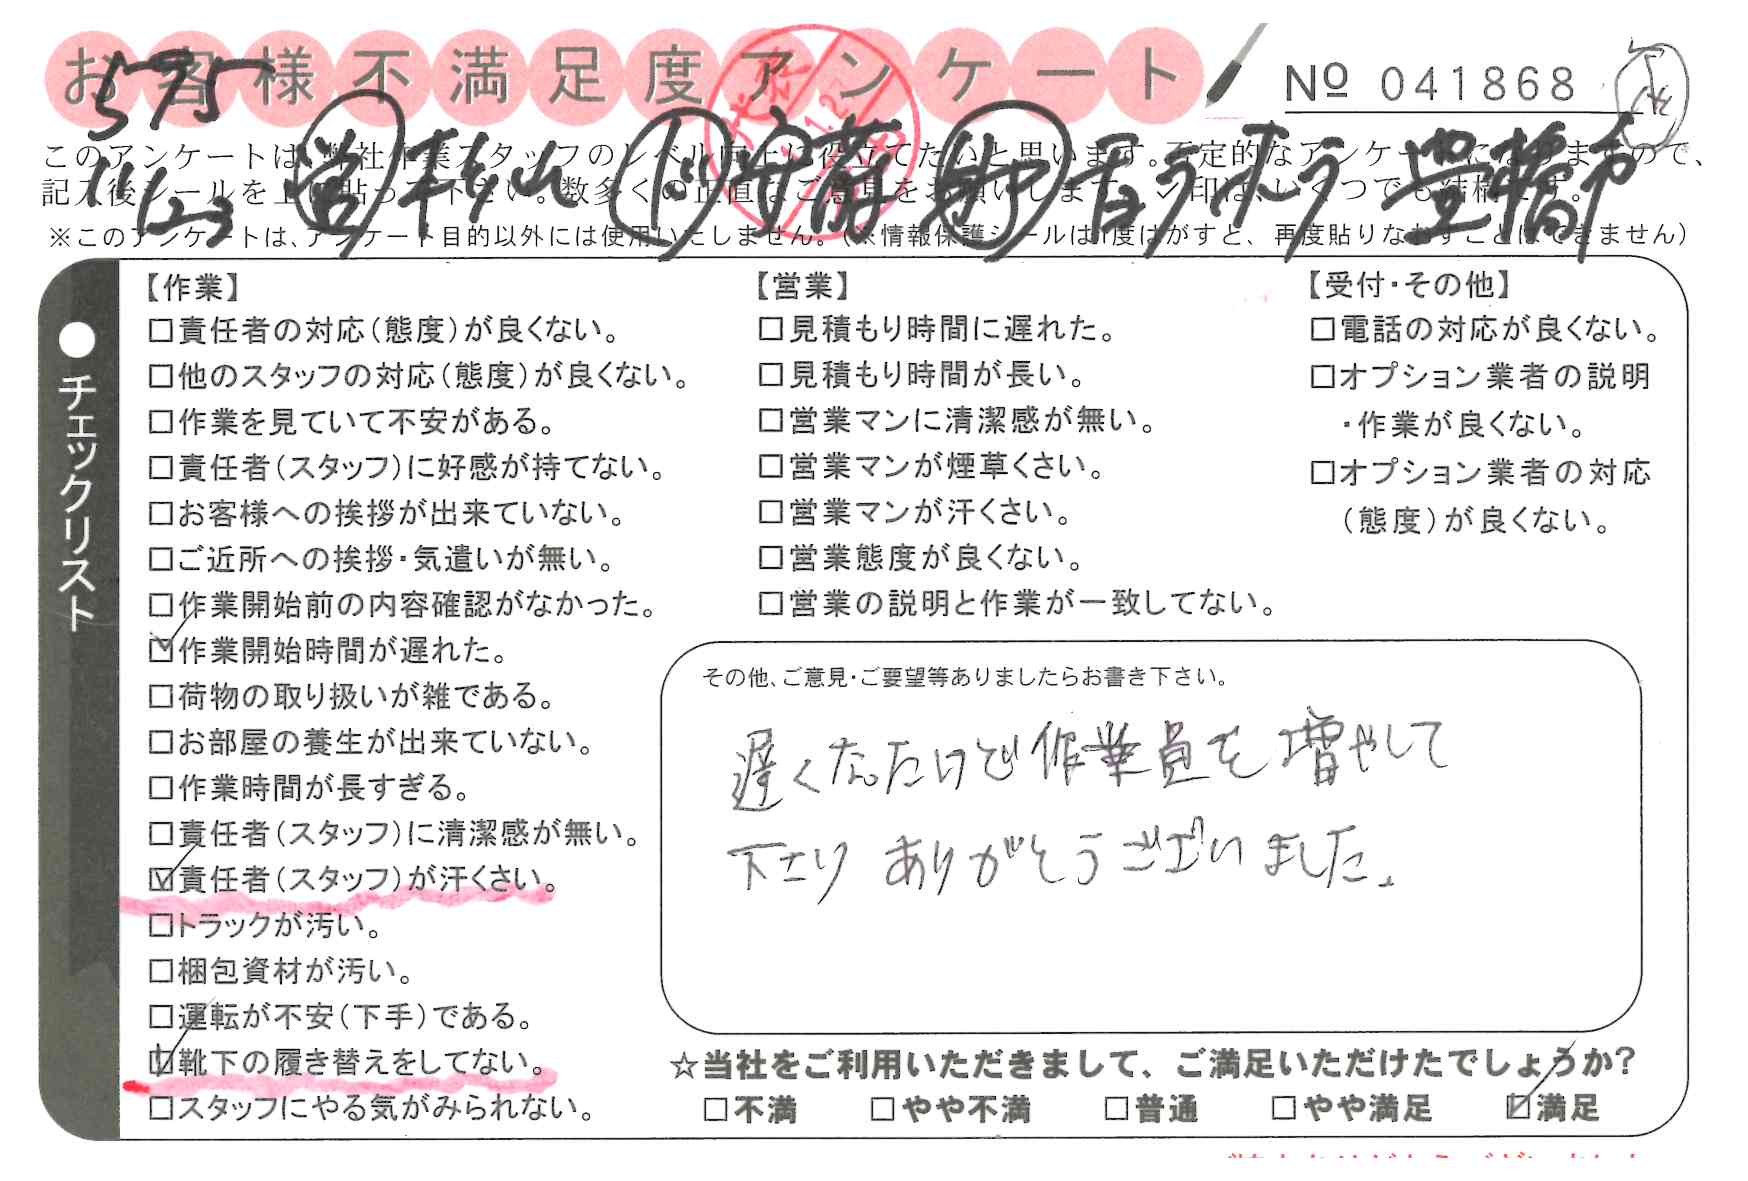 お客様不満足度アンケート
№ 041868
575
11/23
このアンケートは、弊社作業スタッフのレベル向上に役立てたいと思います。否定的なアンケートになりますので、
記入後シールを上に貼って下さい。数多くの正直なご意見をお願いします。
※このアンケートは、アンケート目的以外には使用いたしません。(※情報保護シールは1度はがすと、再度貼りなおすことはできません)
豊橋市
●チェックリスト
【作業】
□責任者の対応(態度)が良くない。
□他のスタッフの対応(態度)が良くない。
□作業を見ていて不安がある。
□責任者(スタッフ)に好感が持てない。
□お客様への挨拶が出来ていない。
□ご近所への挨拶・気遣いが無い。
□作業開始前の内容確認がなかった。
☑作業開始時間が遅れた。
□荷物の取り扱いが雑である。
□お部屋の養生が出来ていない。
□作業時間が長すぎる。
□責任者(スタッフ)に清潔感が無い。
☑責任者(スタッフ)が汗くさい。
□トラックが汚い。
□梱包資材が汚い。
□運転が不安(下手)である。
☑靴下の履き替えをしてない。
□スタッフにやる気がみられない。
【営業】
□見積もり時間に遅れた。
□見積もり時間が長い。
□営業マンに清潔感が無い。
□営業マンが煙草くさい。
□営業マンが汗くさい。
□営業態度が良くない。
□営業の説明と作業が一致してない。
【受付・その他】
□電話の対応が良くない。
□オプション業者の説明
・作業が良くない。
□オプション業者の対応
(態度)が良くない。
その他、ご意見・ご要望等ありましたらお書き下さい。
遅くなったけど作業員を増やして
下さり ありがとうございました。
☆当社をご利用いただきまして、ご満足いただけたでしょうか?
□不満 □やや不満 □普通 □やや満足 ☑満足